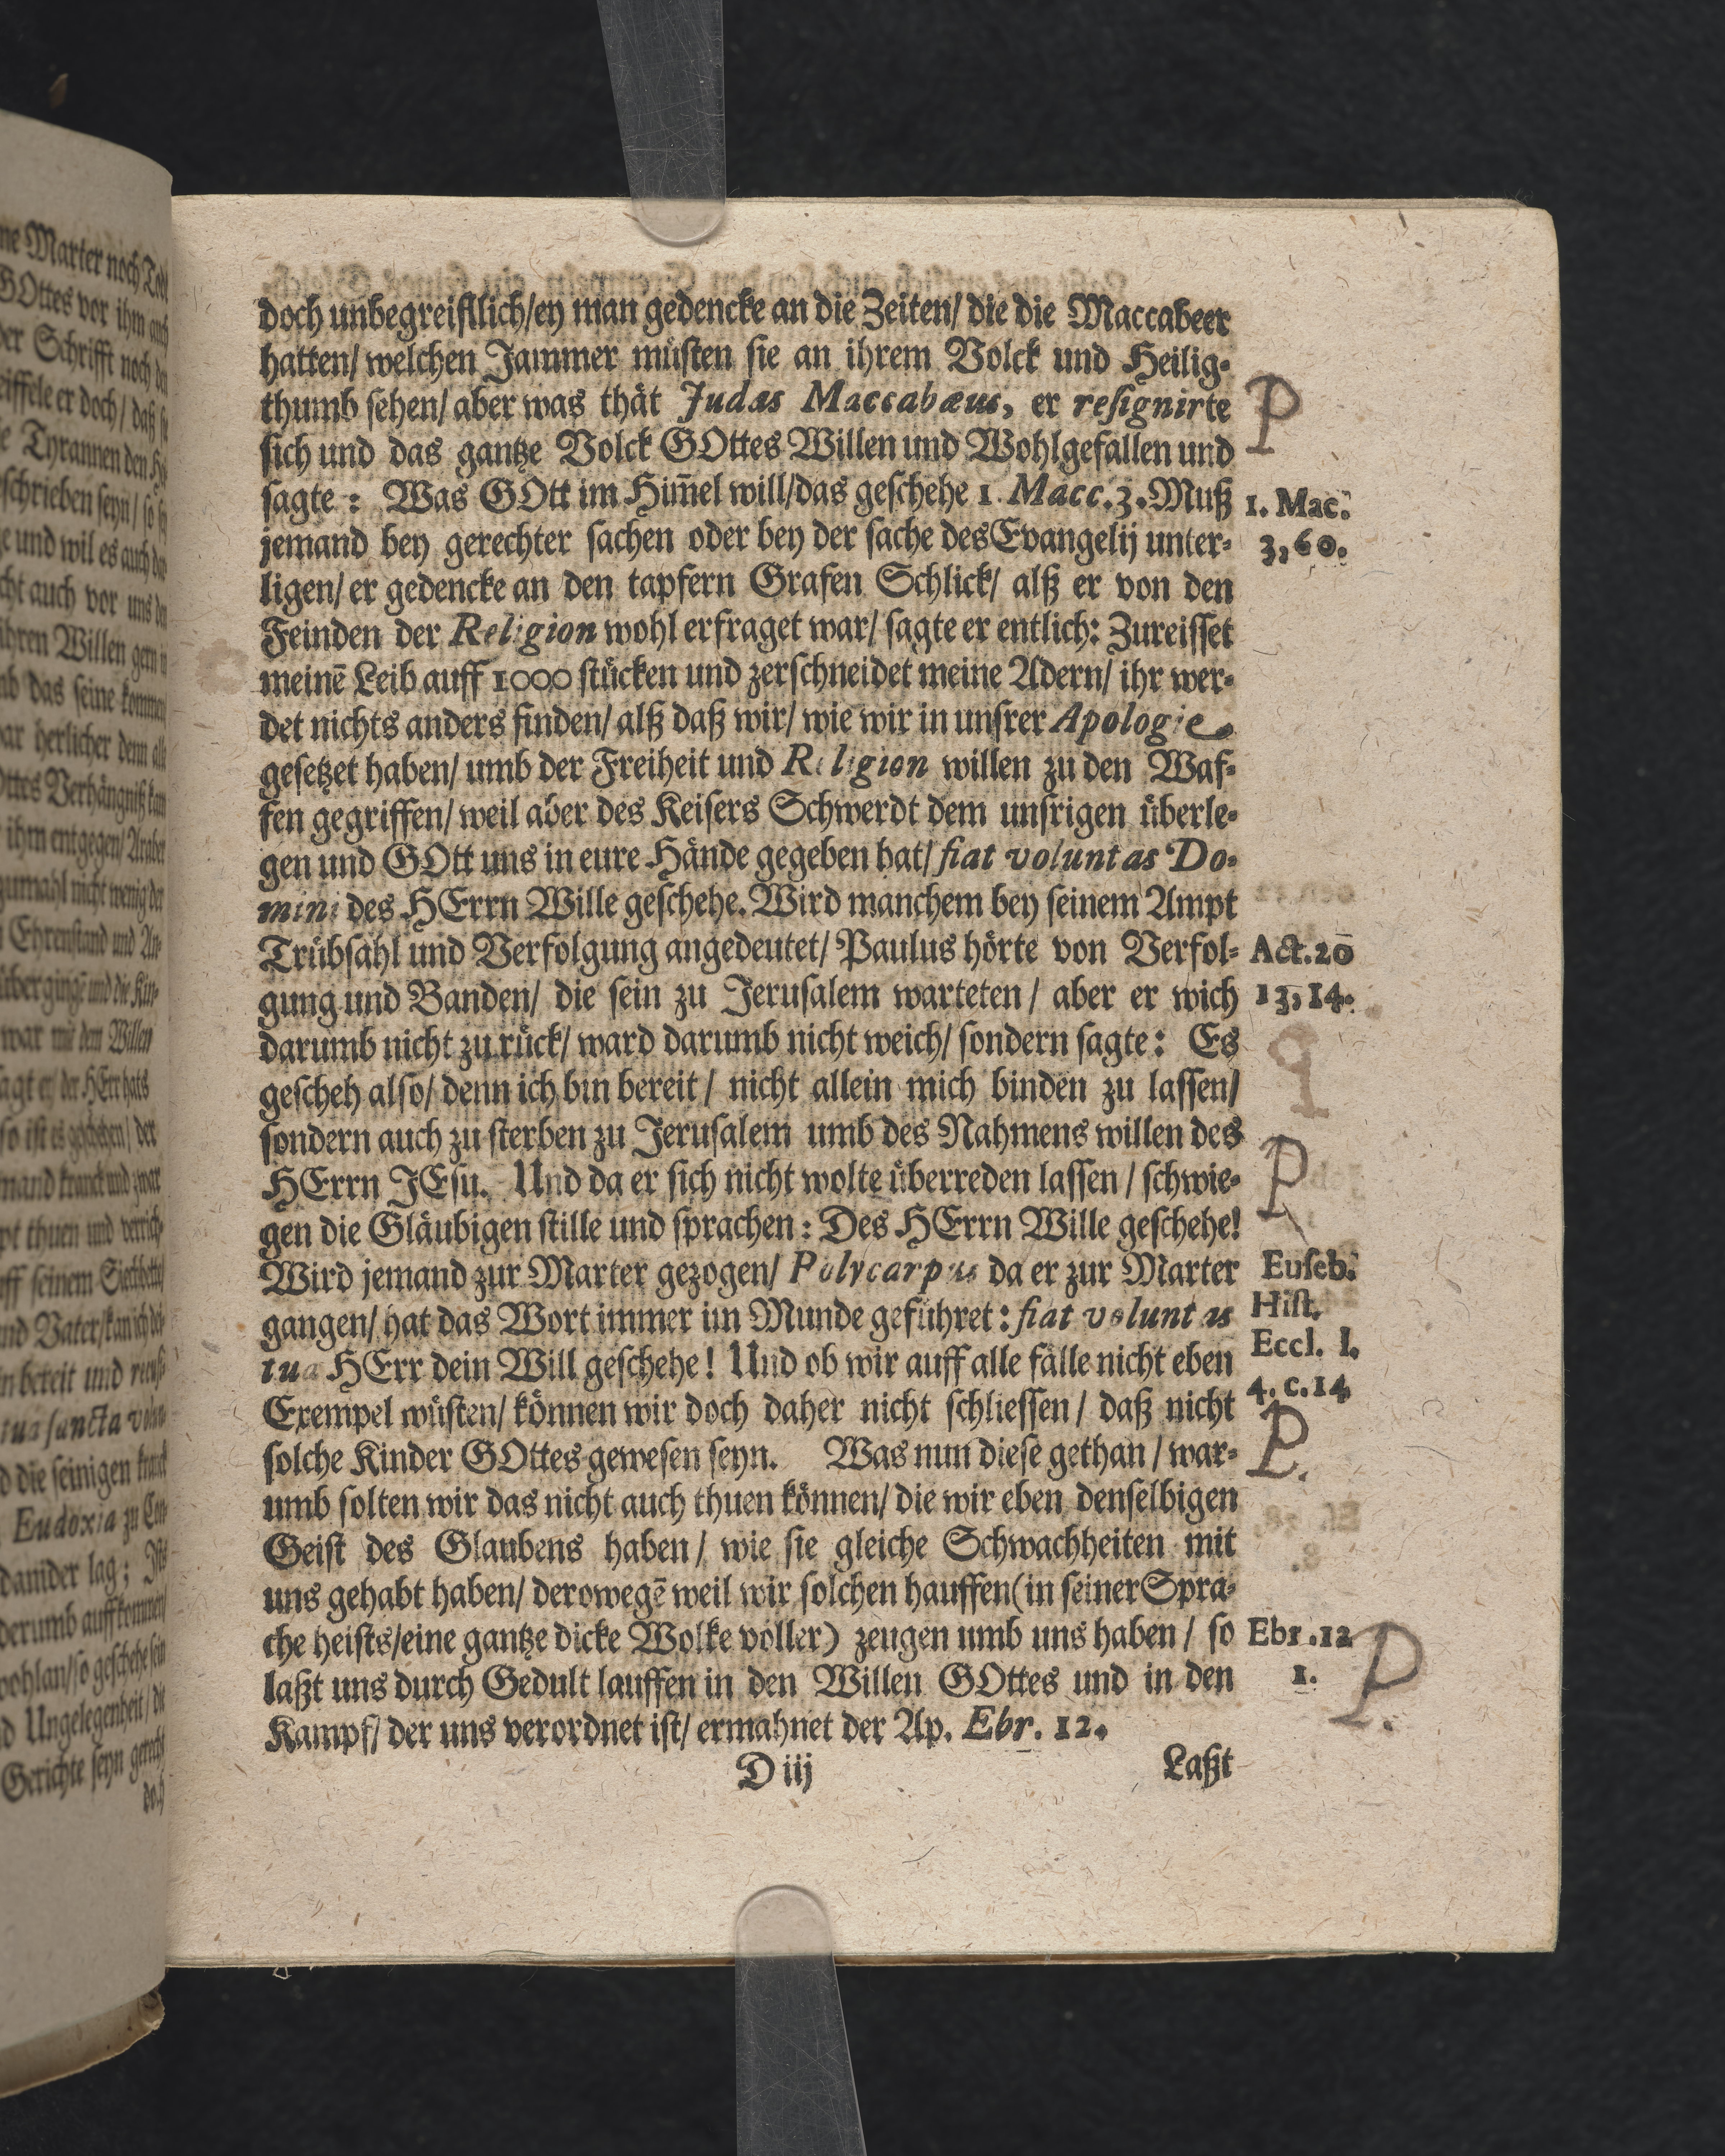 doch unbegreifllich/ey man gedencke an die Zeiten/ die die Maccabeer
hatten/ welchen Jammer müsten sie an ihrem Volck und Heilig-
thumb sehen/ aber was thät Judas Maccabæus, er resignirte
P
sich und das gantze Volck GOttes Willen und Wohlgefallen und
sagte : Was GOtt im Him̄el will/das geschehe 1. Macc.3. Muß
1. Mac.
jemand bey gerechter sachen oder bey der sache des Evangelij unter-
3, 60.
ligen/ er gedencke an den tapfern Grafen Schlick/ alß er von den
Feinden der Religion wohl erfraget war/ sagte er entlich: Zureisset
meinē Leib auff 1000 stücken und zerschneidet meine Adern/ ihr wer-
det nichts anders finden/ alß daß wir/ wie wir in unsrer Apologie
gesetzet haben/ umb der Freiheit und Religion willen zu den Waf-
fen gegriffen/ weil aber des Keisers Schwerdt dem unsrigen überle-
gen und GOtt uns in eure Hände gegeben hat/ fiat voluntas Do-
mini des HErrn Wille geschehe. Wird manchem bey seinem Ampt
Trübsahl und Verfolgung angedeutet/ Paulus hörte von Verfol-
Act. 20
gung und Banden/ die sein zu Jerusalem warteten / aber er wich
13, 14.
darumb nicht zurück/ ward darumb nicht weich/ sondern sagte : Es
gescheh also/ denn ich bin bereit / nicht allein mich binden zu lassen/
sondern auch zu sterben zu Jerusalem umb des Nahmens willen des
P
HErrn JEsu. Und da er sich nicht wolte überreden lassen / schwie-
gen die Gläubigen stille und sprachen : Des HErrn Wille geschehe!
Wird jemand zur Marter gezogen/ Polycarpus da er zur Marter
Euseb.
gangen/ hat das Wort immer im Munde geführet : fiat voluntas
Hist.
tua HErr dein Will geschehe ! Und ob wir auff alle fälle nicht eben
Eccl. l.
Exempel wüsten/ können wir doch daher nicht schliessen / daß nicht
4. c. 14
P.
solche Kinder GOttes gewesen seyn. Was nun diese gethan / war-
umb solten wir das nicht auch thuen können/ die wir eben denselbigen
Geist des Glaubens haben / wie sie gleiche Schwachheiten mit
uns gehabt haben/ derowegē weil wir solchen hauffen (in seiner Spra-
che heists/eine gantze dicke Wolke voller) zeugen umb uns haben / so
Ebr. 12
laßt uns durch Gedult lauffen in den Willen GOttes und in den
1.
P.
Kampf/ der uns verordnet ist/ ermahnet der Ap. Ebr. 12.
D iij
Laßt